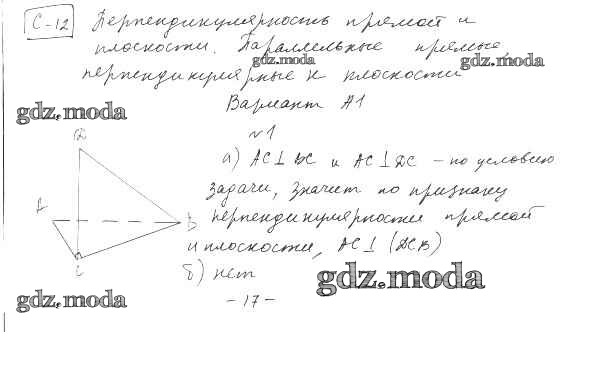 С-12 Перпендикулярность прямой и
плоскости. Параллельные прямые,
перпендикулярные к плоскости
gdz.moda
gdz.moda
gdz.moda
Вариант А1
№1
D
а) AC⊥BC и AC⊥DC – по условию
задачи, значит по признаку
A
B
перпендикулярности прямой
и плоскости, AC⊥(DCB)
C
б) нет
gdz.moda
gdz.moda
– 17 –